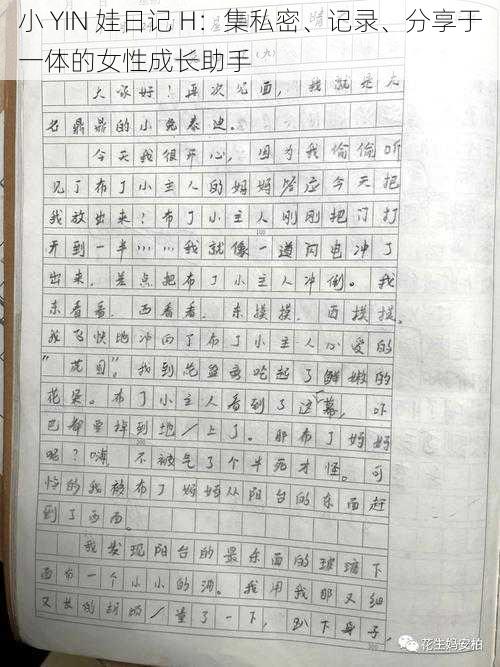 小 YIN 娃日记 H：集私密、记录、分享于
一体的女性成长助手
（九）
大家好！再次见面，我就是大
名鼎鼎的小兔泰迪。
今天我很开心，因为我偷偷听
见了布丁小主人的妈妈答应今天把
我放出来？布丁小主人刚刚把门打
开到一半……我就像一道闪电冲了
出来，差点把布丁小主人冲倒。我
东看看，西看看，东摸摸，西摸摸。
我飞快地冲向了布丁小主人心爱的
花盆旁吃起了鲜嫩的
花朵。布丁小主人看到了这幕，吓
巴都要掉到地上了。那布丁妈妈
呢？嘻，不被气了个半死才怪。可
怜的我被布丁妈妈从阳台的东面赶
到了西面。
我发现阳台的最东面的玻璃下
面有一个小小的洞。我用我那又细
又长的胡须量了一下，趴下身子，
花生妈安柏